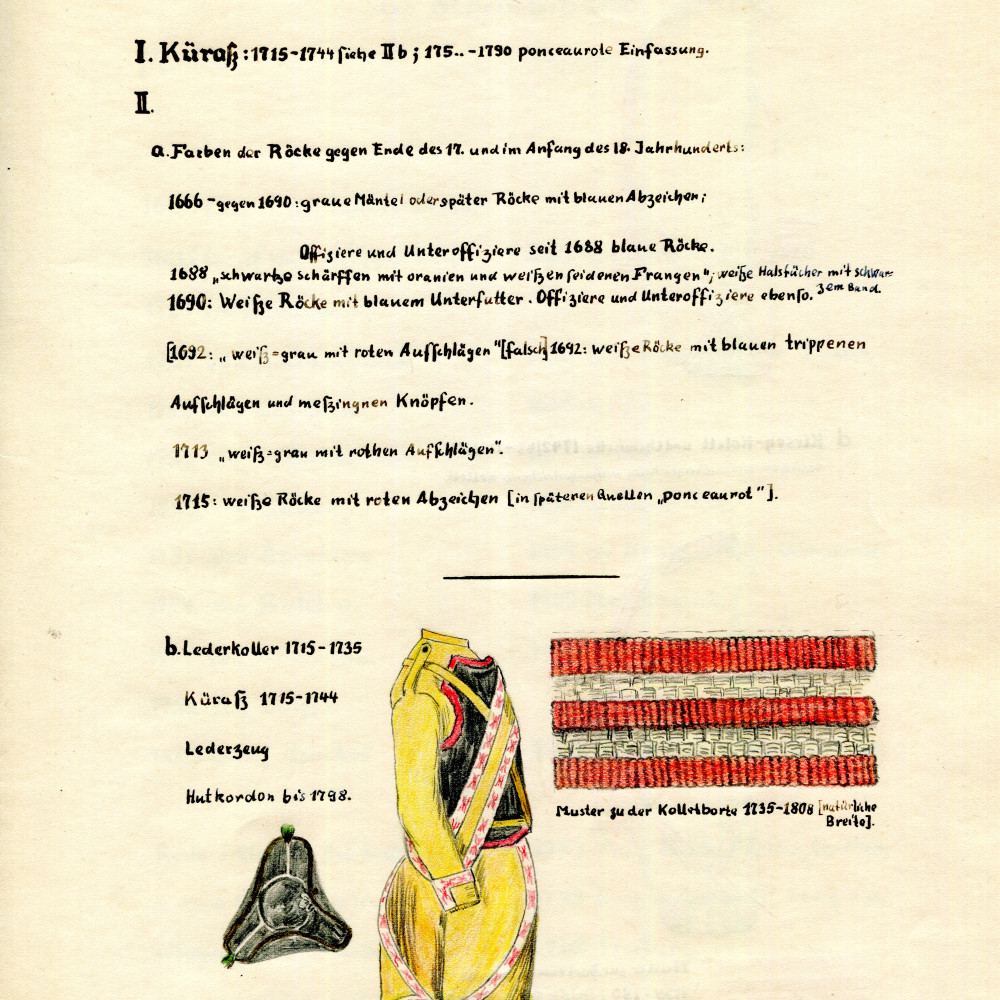 I. Küraß: 1715-1744 siehe II b; 175.. -1790 ponceaurote Einfassung.
II.
a. Farben der Röcke gegen Ende des 17. und im Anfang des 18. Jahrhunderts:
1666 - gegen 1690: graue Mäntel oder später Röcke mit blauen Abzeichen;
Offiziere und Unteroffiziere seit 1688 blaue Röcke.
1688 „schwartze schärffen mit oranien und weißen seidenen Frangen"; weiße Halstücher mit schwar-
zem Band.
1690: Weiße Röcke mit blauem Unterfutter. Offiziere und Unteroffiziere ebenso.
[1692: „weiß=grau mit roten Aufschlägen" [falsch] 1692: weiße Röcke mit blauen trippenen
Aufschlägen und meßingnen Knöpfen.
1713 „weiß=grau mit rothen Aufschlägen".
1715: weiße Röcke mit roten Abzeichen [in späteren Quellen „ponceaurot"].
b. Lederkoller 1715-1735
Küraß 1715-1744
Lederzeug
Hutkordon bis 1798.
Muster zu der Kolletborte 1735-1808 [natürliche
Breite].